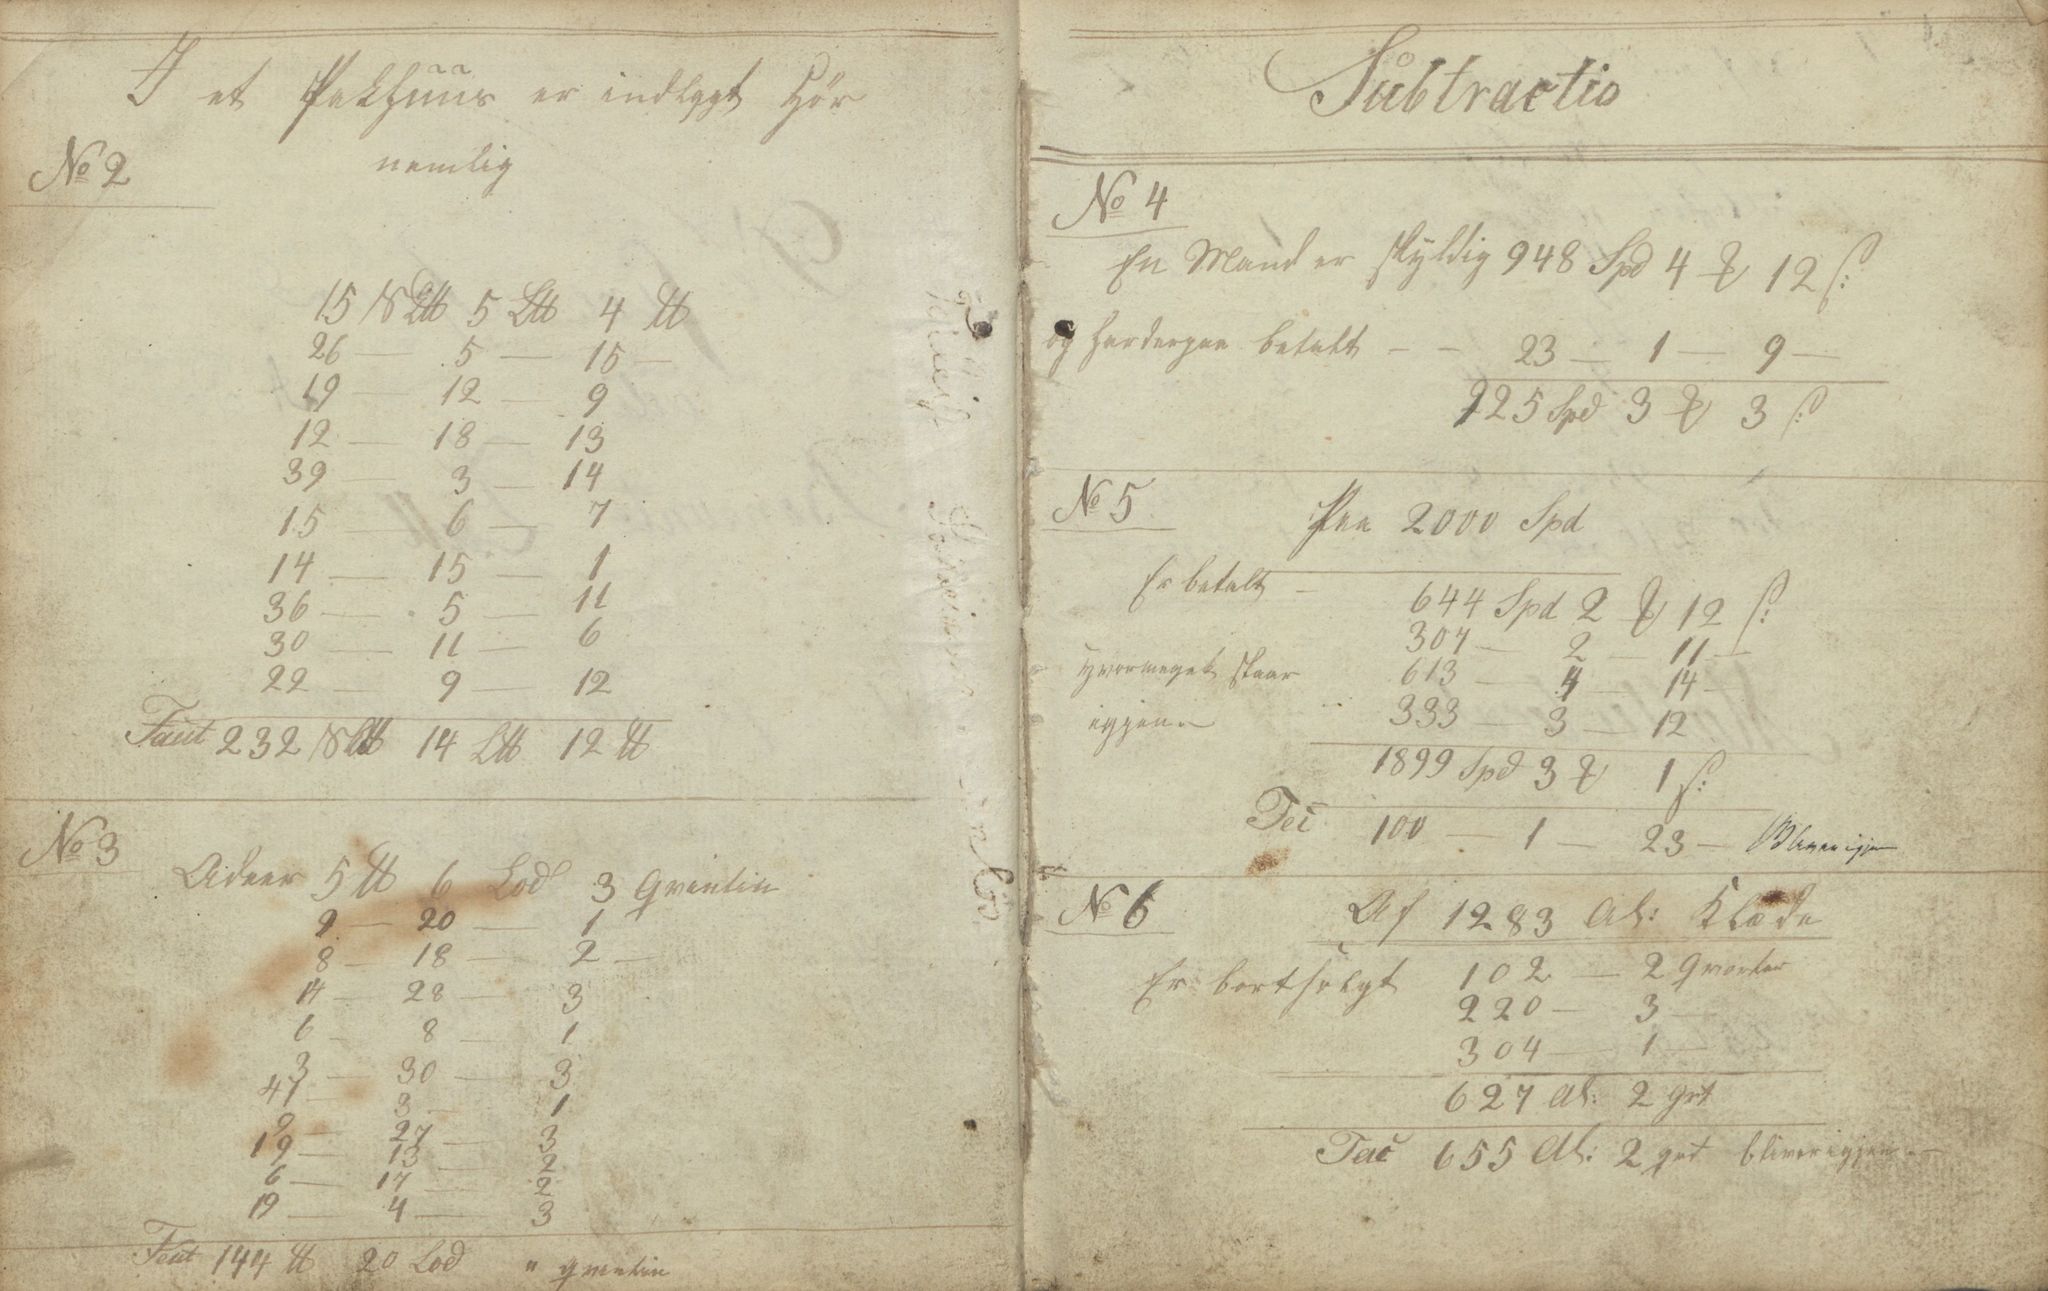 I et Pakhuus er indlagt Hør
nemlig
No 2
15 S℔ 5 L℔ 4 ℔
26 — 5 — 15 —
19 — 12 — 9
12 — 18 — 13
39 — 3 — 14
15 — 6 — 7
14 — 15 — 1
36 — 5 — 11
30 — 11 — 6
22 — 9 — 12
Faut 232 S℔ 14 L℔ 12 ℔
No 3
Adeer 5 ℔ 6 Lod 3 Qvintin
9 — 20 — 1
8 — 18 — 2 —
14 — 28 — 3
6 — 8 — 1
3 — 30 — 3
47 — 3 — 1
9 — 27 — 3
19 — 13 — 2
6 — 17 — 2
19 — 4 — 3
Feut 144 ℔ 20 Lod " qvintin
Subtractio
No 4
En Mand er skyldig 948 Spd 4 ꝣ 12 ſ:
og harderpaa betalt — — 23 — 1 — 9 —
925 Spd 3 ꝣ 3 ſ:
No 5
Paa 2000 Spd
Er betalt — 644 Spd 2 ꝣ 12 ſ:
307 — 2 — 11 —
Hvormeget staar 613 — 4 — 14 —
igjen 333 — 3 — 12
1899 Spd 3 ꝣ 1 ſ:
Tec 100 — 1 — 23 — Bliver igjen
No 6
Af 1283 Al: Klæde
Er bortsolgt 102 — 2 Qvarter
220 — 3 —
304 — 1 —
627 Al: 2 qrt
Tac 655 Al: 2 qrt bliver igjen —